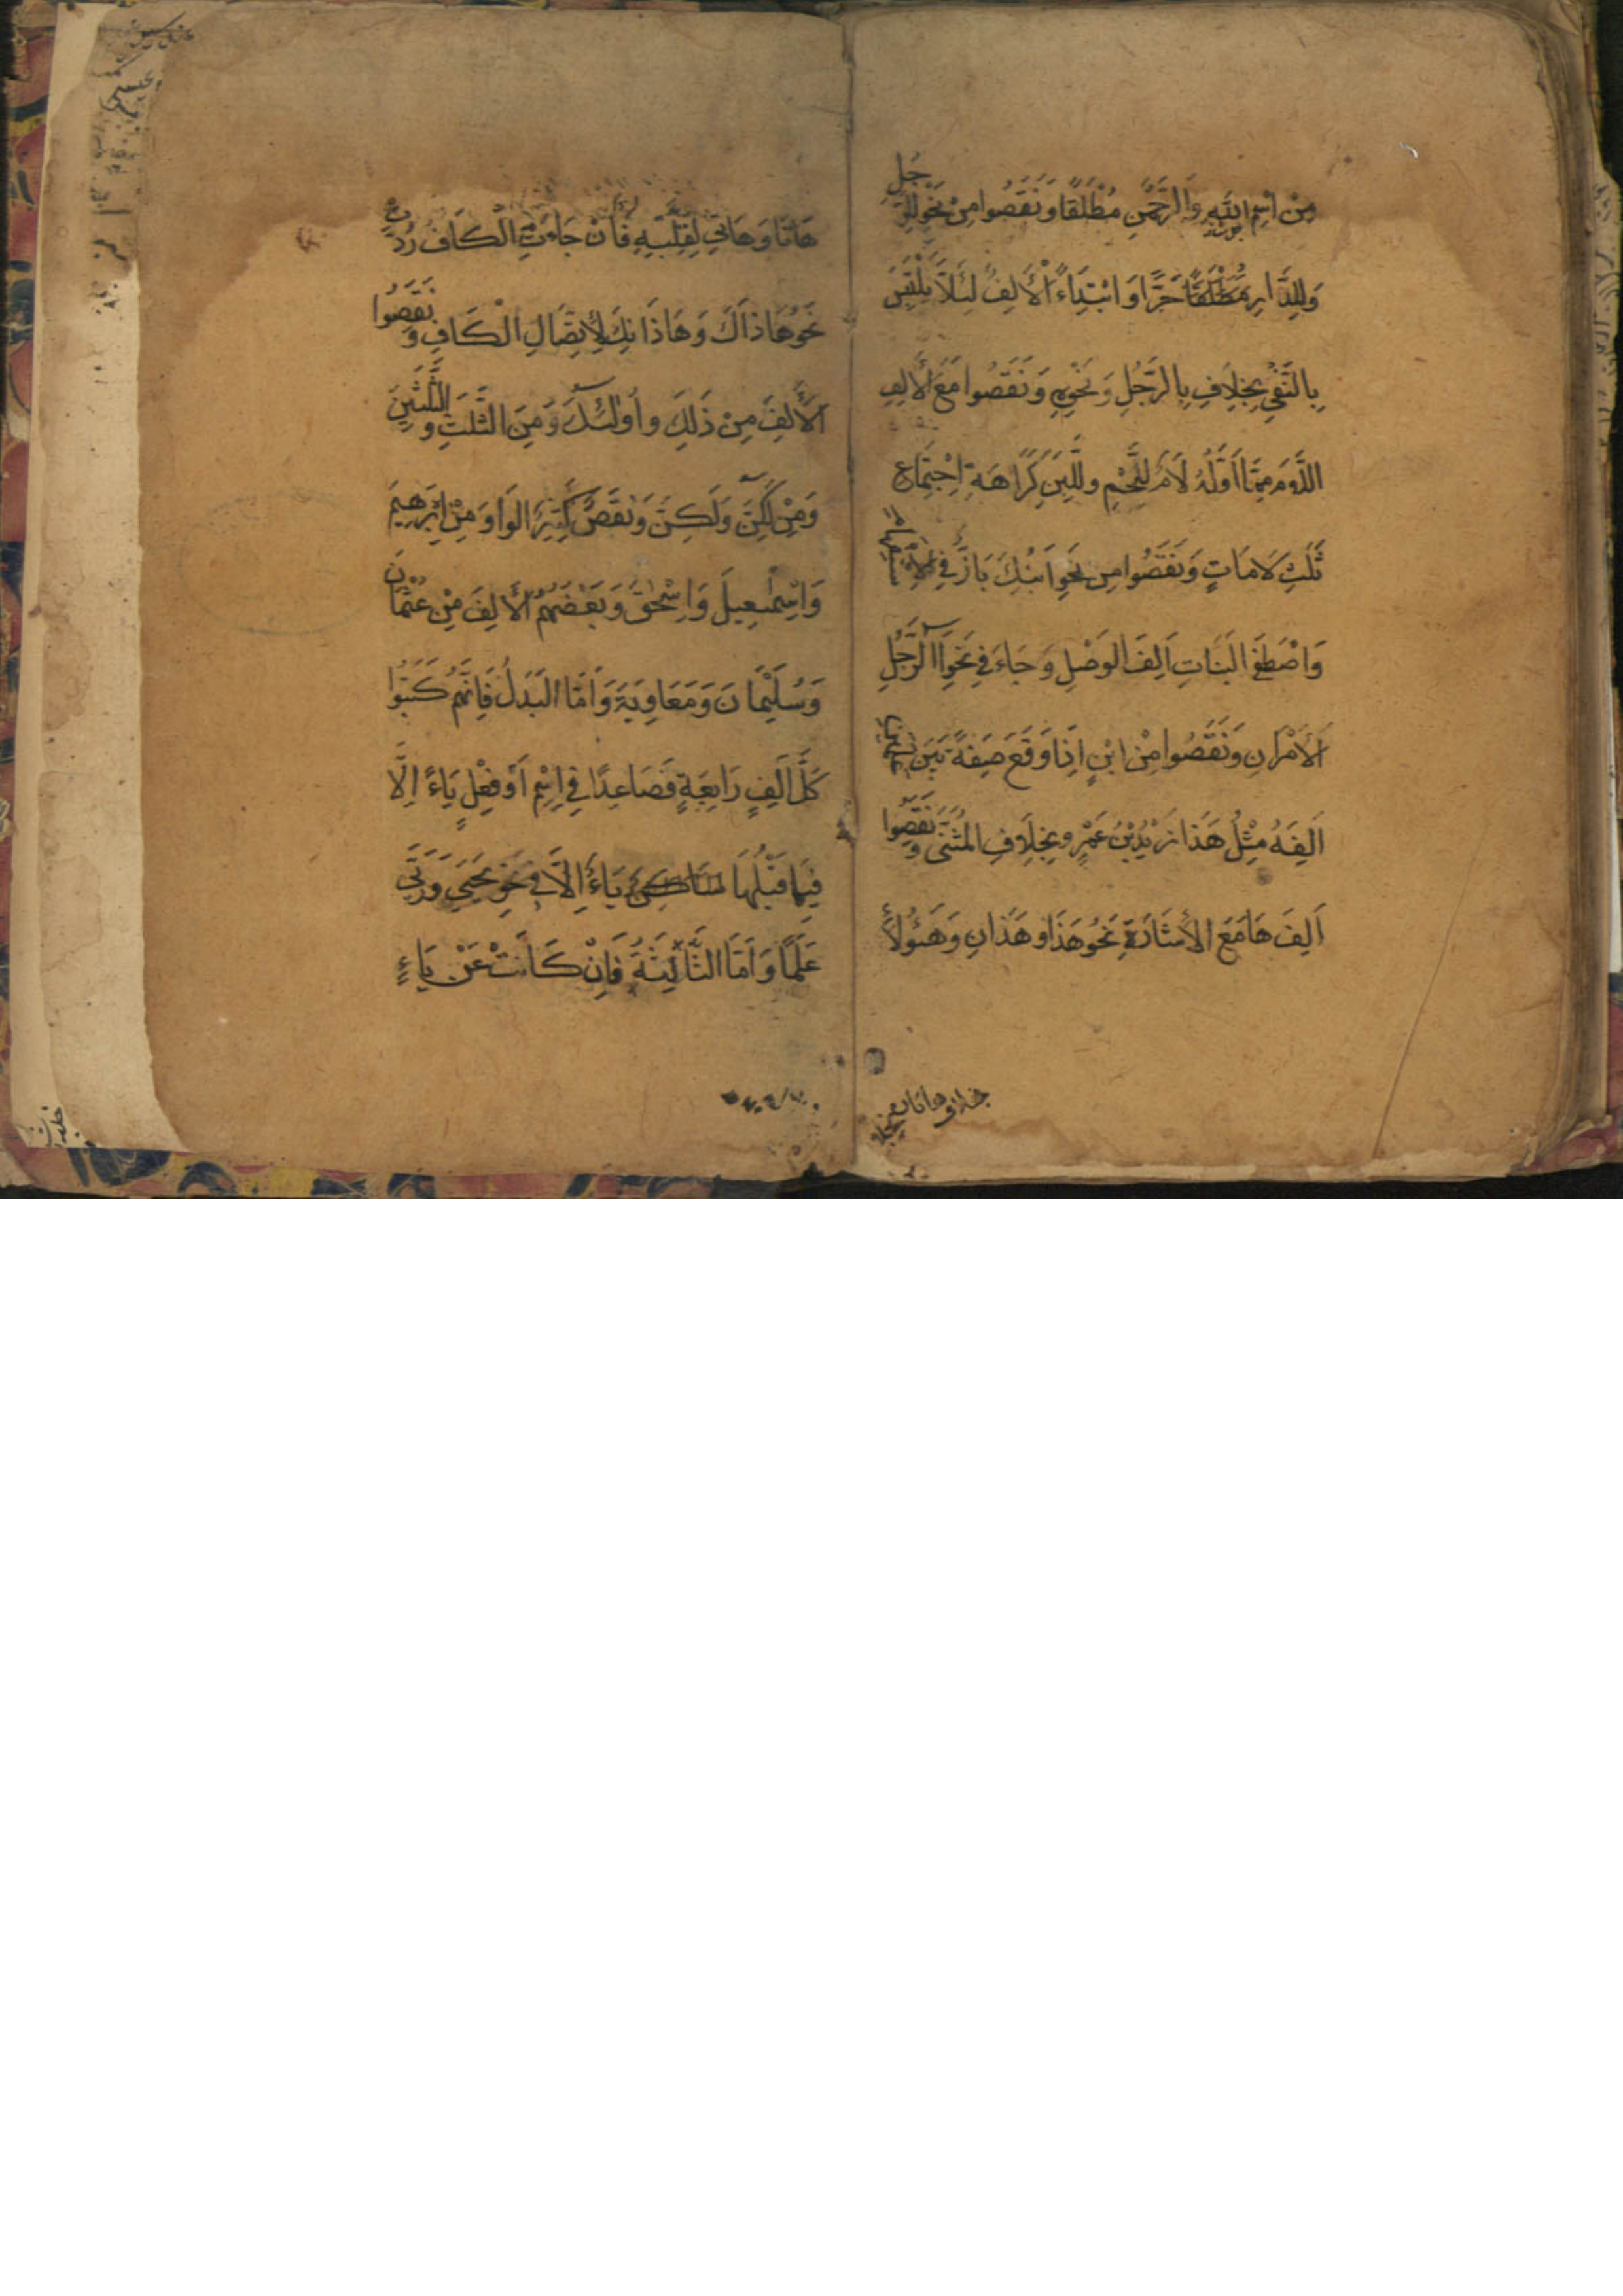 مِنْ اسْمِ اللّٰهِ وَالرَّحْمٰنِ مُطْلَقًا وَنَقَصُوا مِنْ نَحْوِ لِلرَّجُلِ
وَلِلدَّارِ مُطْلَقًا جَرًّا وَابْتِدَاءً الْأَلِفَ لِئَلَّا يَلْتَبِسَ
بِالنَّفْيِ بِخِلَافِ بِالرَّجُلِ وَنَحْوِهِ وَنَقَصُوا مَعَ الْأَلِفِ
اللَّامَ مِمَّا أَوَّلُهُ لَامٌ لِلَّحْمِ وَلِلَّبَنِ كَرَاهَةَ اجْتِمَاعِ
ثَلٰثِ لَامَاتٍ وَنَقَصُوا مِنْ نَحْوِ ابْنُكَ بَارٌّ فِي
وَاصْطَفَى الْبَنَاتِ أَلِفَ الْوَصْلِ وَجَاءَ فِي نَحْوِ اَالرَّجُلِ
الْأَمْرَانِ وَنَقَصُوا مِنْ ابْنٍ إِذَا وَقَعَ صِفَةً بَيْنَ عَلَمَيْنِ
أَلِفَهُ مِثْلُ هٰذَا زَيْدُ بْنُ عَمْرٍو بِخِلَافِ الْمُثَنَّى وَنَقَصُوا
أَلِفَ هَا مَعَ الْإِشَارَةِ نَحْوُ هٰذَا وَهٰذَانِ وَهٰؤُلَاءِ
بخلاف هاتا
هَاتَا وَهَاتِي لِقِلَّتِهِ فَإِنْ جَاءَتِ الْكَافُ رُدَّتْ
نَحْوُ هَاذَاكَ وَهَاذَانِكَ لِاتِّصَالِ الْكَافِ وَنَقَصُوا
الْأَلِفَ مِنْ ذٰلِكَ وَأُولٰئِكَ وَمِنَ الثَّلٰثِ وَالثَّلٰثِينَ
وَمِنْ لٰكِنْ وَلٰكِنَّ وَنَقَصَ كَثِيرٌ الْوَاوَ مِنْ إِبْرٰهِيمَ
وَإِسْمٰعِيلَ وَإِسْحٰقَ وَبَعْضُهُمُ الْأَلِفَ مِنْ عُثْمَانَ
وَسُلَيْمَانَ وَمُعَاوِيَةَ وَأَمَّا الْبَدَلُ فَإِنَّهُمْ كَتَبُوا
كُلَّ أَلِفٍ رَابِعَةٍ فَصَاعِدًا فِي اسْمٍ أَوْ فِعْلٍ يَاءً إِلَّا
فِيمَا قَبْلَهَا يَاءٌ إِلَّا فِي نَحْوِ يَحْيَى وَرَيَّى
عَلَمًا وَأَمَّا الثَّالِثَةُ فَإِنْ كَانَتْ عَنْ يَاءٍ